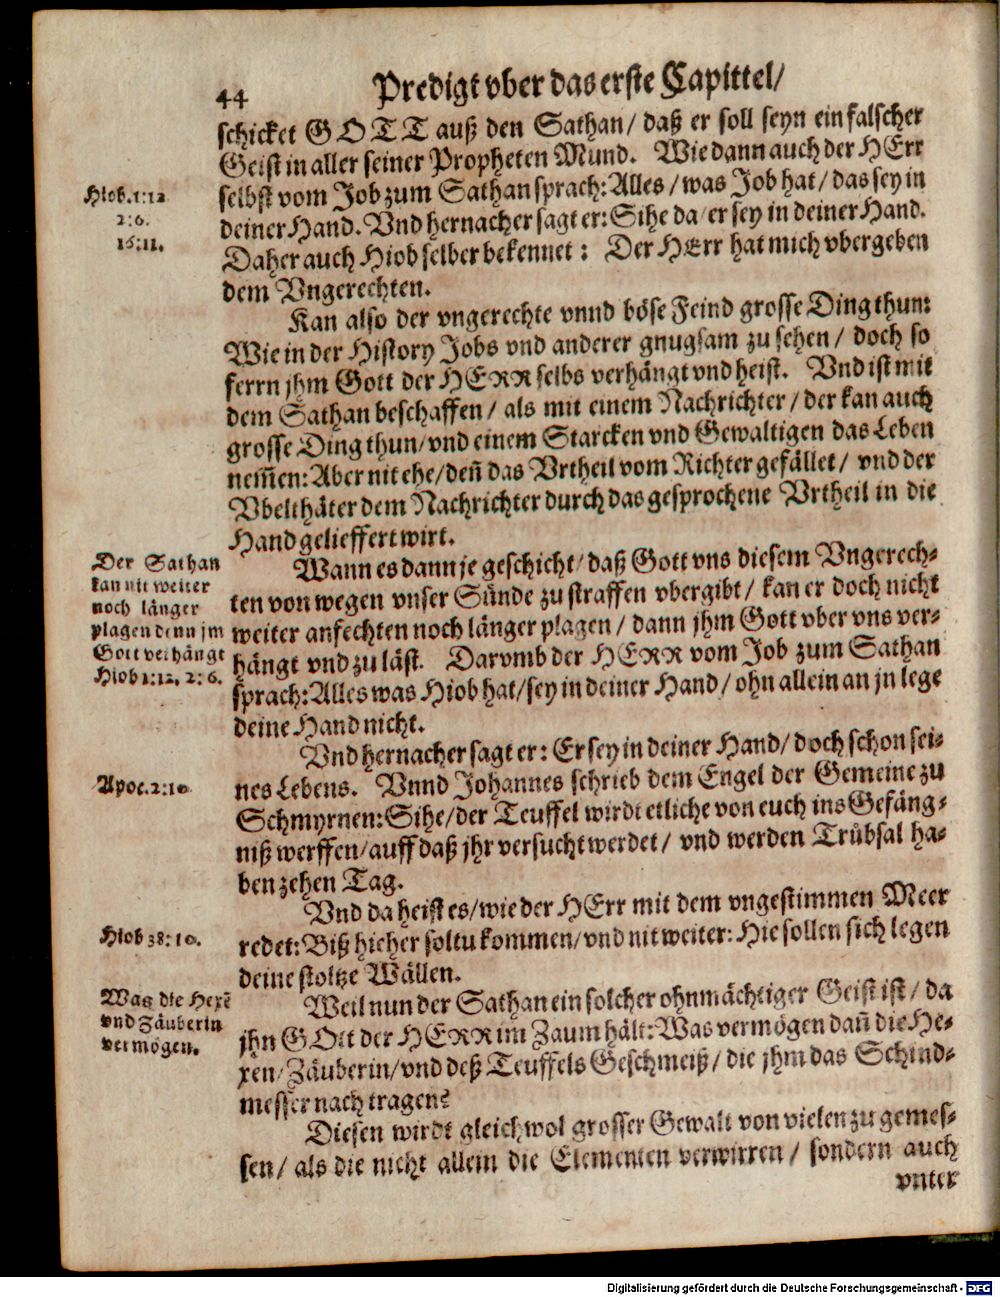 44 Predigt vber das erste Capittel/
schicket GOTT auß den Sathan/ daß er soll seyn ein falscher
Geist in aller seiner Propheten Mund. Wie dann auch der HErr
Hiob. 1:12
2:6.
16:11.
selbst vom Job zum Sathan sprach: Alles/ was Job hat/ das sey in
deiner Hand. Vnd hernacher sagt er: Sihe da/ er sey in deiner Hand.
Daher auch Hiob selber bekennet: Der HErr hat mich vbergeben
dem Vngerechten.
Kan also der vngerechte vnnd böse Feind grosse Ding thun:
Wie in der History Jobs vnd anderer gnugsam zu sehen/ doch so
ferrn jhm Gott der HERR selbs verhängt vnd heist. Vnd ist mit
dem Sathan beschaffen/ als mit einem Nachrichter/ der kan auch
grosse Ding thun/ vnd einem Starcken vnd Gewaltigen das Leben
nem̄en: Aber nit ehe/ deñ das Vrtheil vom Richter gefället/ vnd der
Vbelthäter dem Nachrichter durch das gesprochene Vrtheil in die
Hand gelieffert wirt.
Der Sathan
kan nit weiter
noch länger
plagen denn jm
Gott verhängt
Hiob 1:12. 2:6.
Wann es dann je geschicht/ daß Gott vns diesem Vngerech-
ten von wegen vnser Sünde zu straffen vbergibt/ kan er doch nicht
weiter anfechten noch länger plagen/ dann jhm Gott vber vns ver-
hängt vnd zu läst. Darvmb der HERR vom Job zum Sathan
sprach: Alles was Hiob hat/ sey in deiner Hand/ ohn allein an jn lege
deine Hand nicht.
Vnd hernacher sagt er: Er sey in deiner Hand/ doch schon sei-
Apoc. 2:10
nes Lebens. Vnnd Johannes schrieb dem Engel der Gemeine zu
Schmyrnen: Sihe/ der Teuffel wirdt etliche von euch ins Gefäng-
niß werffen/ auff daß jhr versucht werdet/ vnd werden Trübsal ha-
ben zehen Tag.
Vnd da heist es/ wie der HErr mit dem vngestimmen Meer
Hiob 38:10.
redet: Biß hieher soltu kommen/ vnd nit weiter: Hie sollen sich legen
deine stoltze Wällen.
Was die Hexẽ
vnd Zäuberin
vermögen.
Weil nun der Sathan ein solcher ohnmächtiger Geist ist/ da
jhn GOtt der HERR im Zaum hält: Was vermögen dañ die He-
xen/ Zäuberin/ vnd deß Teuffels Geschmeiß/ die jhm das Schind-
messer nach tragen?
Diesen wirdt gleichwol grosser Gewalt von vielen zu gemes-
sen/ als die nicht allein die Elementen verwirren/ sondern auch
vnter
Digitalisierung gefördert durch die Deutsche Forschungsgemeinschaft - DFG